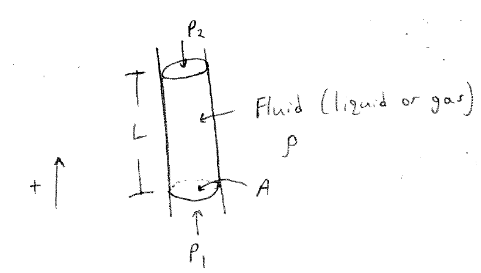 P2
Fluid (liquid or gas)
L
ρ
+
A
P1